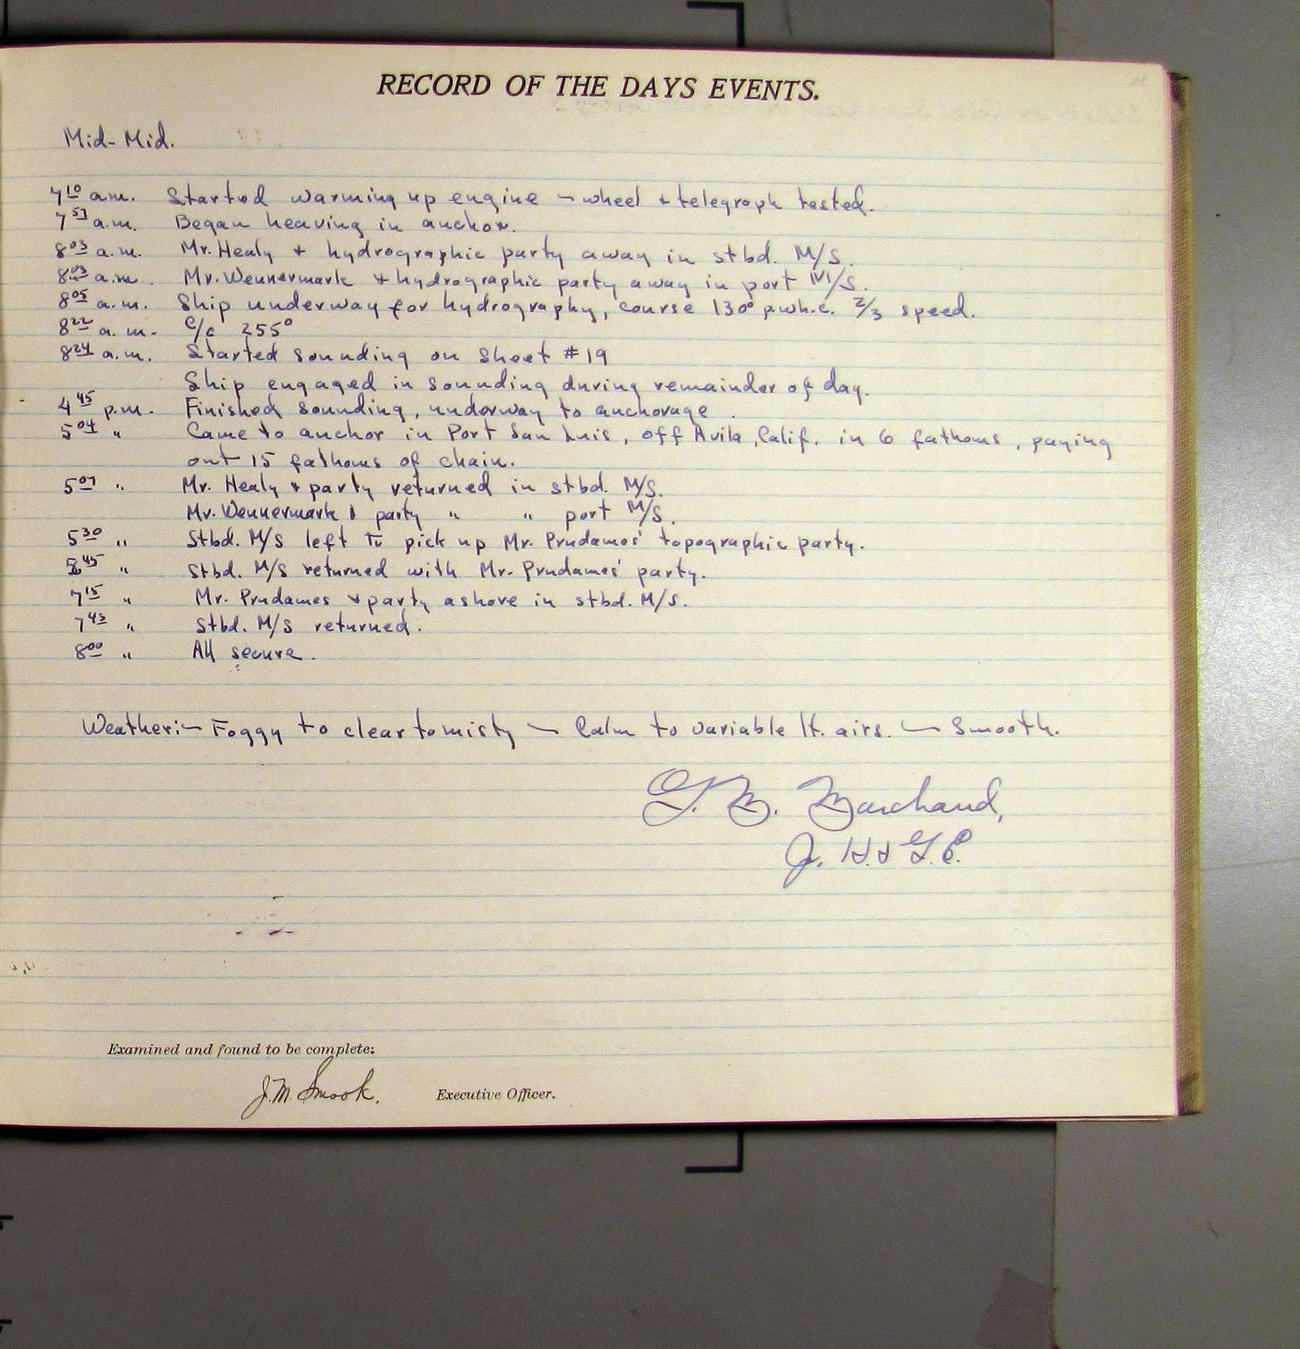 RECORD OF THE DAYS EVENTS.
Mid-Mid.
7 10 a.m. Started warming up engine – wheel & telegraph tested.
7 57 a.m. Began heaving in anchor.
8 03 a.m. Mr. Healy & hydrographic party away in stbd. M/S.
8 03 a.m. Mr. Wennermark & hydrographic party away in port M/S.
8 05 a.m. Ship underway for hydrography, course 130° p.wh.c. 2/3 speed.
8 22 a.m. c/c 255°
8 24 a.m. Started sounding on Sheet #19
Ship engaged in sounding during remainder of day.
4 45 p.m. Finished sounding, underway to anchorage.
5 04 " Came to anchor in Port San Luis, off Avila, Calif. in 6 fathoms, paying
out 15 fathoms of chain.
5 07 " Mr. Healy & party returned in stbd. M/S.
Mr. Wennermark & party " " port M/S.
5 30 " Stbd. M/S left to pick up Mr. Prudames' topographic party.
45 " Stbd. M/S returned with Mr. Prudames' party.
7 15 " Mr. Prudames & party ashore in stbd. M/S.
7 43 " Stbd. M/S returned.
8 00 " All secure.
Weather:– Foggy to clear to misty – Calm to variable lt. airs. – Smooth.
Marchand,
J. H. & G. E.
Examined and found to be complete:
J.M. Smook. Executive Officer.